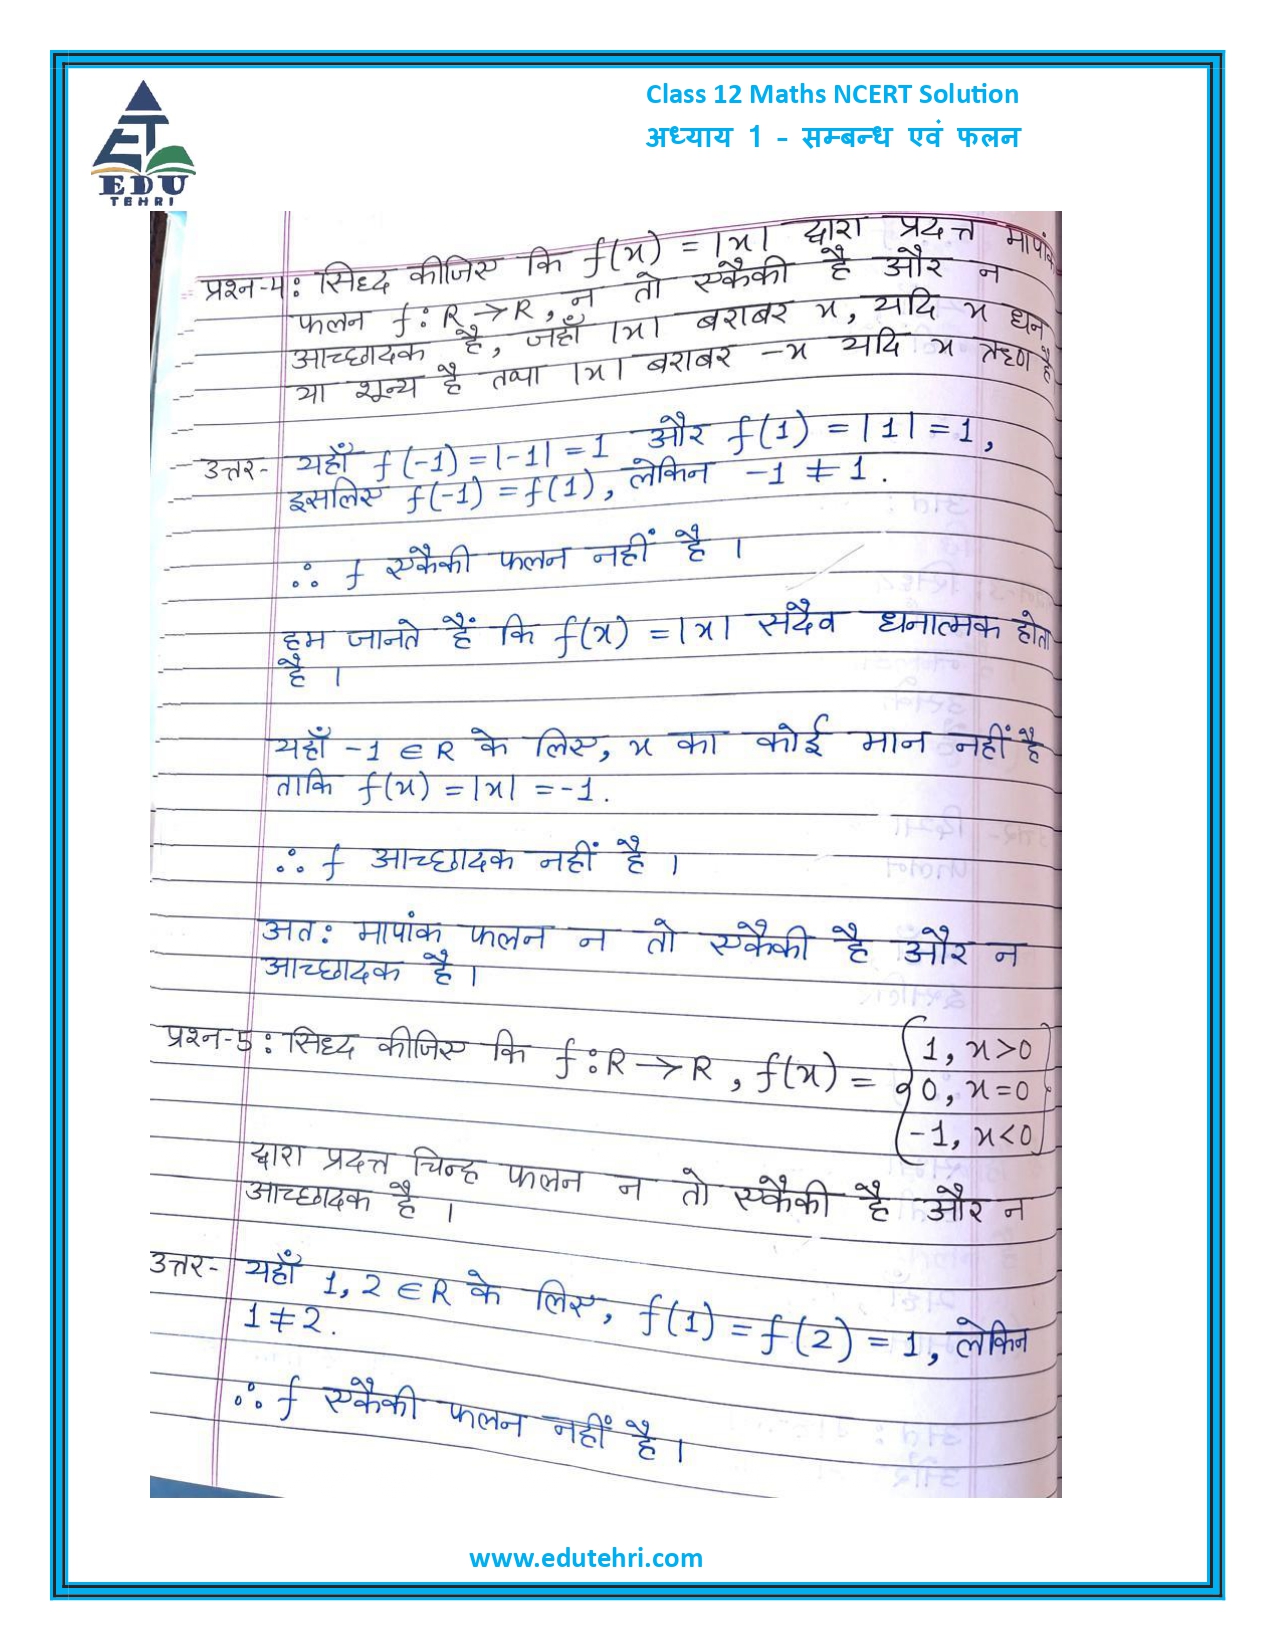 Class 12 Maths NCERT Solution
अध्याय 1 - सम्बन्ध एवं फलन
EDU
TEHRI
प्रश्न-4: सिध्द कीजिए कि f(x) = |x| द्वारा प्रदत्त मापांक
फलन f: R→R, न तो एकैकी है और न
आच्छादक है, जहाँ |x| बराबर x, यदि x धन
या शून्य है तथा |x| बराबर -x यदि x ऋण है
उत्तर- यहाँ f(-1) = |-1| = 1 और f(1) = |1| = 1,
इसलिए f(-1) = f(1), लेकिन -1 ≠ 1.
∴ f एकैकी फलन नहीं है ।
हम जानते हैं कि f(x) = |x| सदैव धनात्मक होता
है ।
यहाँ -1 ∈ R के लिए, x का कोई मान नहीं है
ताकि f(x) = |x| = -1.
∴ f आच्छादक नहीं है ।
अत: मापांक फलन न तो एकैकी है और न
आच्छादक है ।
प्रश्न-5: सिध्द कीजिए कि f: R→R, f(x) = { 1, x>0
0, x=0
-1, x<0 }
द्वारा प्रदत्त चिन्ह फलन न तो एकैकी है और न
आच्छादक है ।
उत्तर- यहाँ 1, 2 ∈ R के लिए, f(1) = f(2) = 1, लेकिन
1 ≠ 2.
∴ f एकैकी फलन नहीं है ।
www.edutehri.com